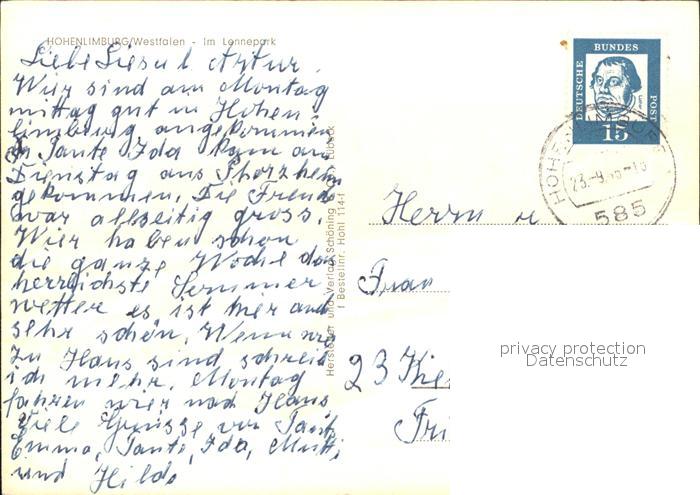 HOHENLIMBURG/Westfalen - Im Lennepark
Liebe Liesel u Artur.
Wir sind am Montag
mittag gut in Hohen
limburg angekommen
Tante Ida kam am
Dienstag aus Pforzheim
gekommen. Die Freude
war allseitig gross.
Wir haben schon
die ganze Woche das
herrlichste Sommer
wetter es ist hier auch
sehr schön. Wenn wir
zu Haus sind schreib
ich mehr. Montag
fahren wir nach Haus
Viele Grüsse von Tante
Emma, Tante, Ida, Mutti
und Hilde
Hersteller und Verlag Schöning & Co Lübeck
Bestellnr. Hohl 114
DEUTSCHE
BUNDES
POST
Luther
15
23.-9.
585
Herrn u
Frau
23 Kie
Fri
privacy protection
Datenschutz